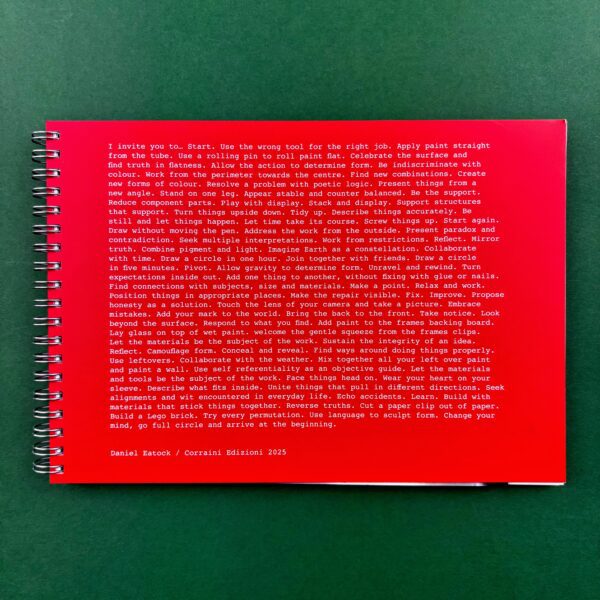 I invite you to… Start. Use the wrong tool for the right job. Apply paint straight
from the tube. Use a rolling pin to roll paint flat. Celebrate the surface and
find truth in flatness. Allow the action to determine form. Be indiscriminate with
colour. Work from the perimeter towards the centre. Find new combinations. Create
new forms of colour. Resolve a problem with poetic logic. Present things from a
new angle. Stand on one leg. Appear stable and counter balanced. Be the support.
Reduce component parts. Play with display. Stack and display. Support structures
that support. Turn things upside down. Tidy up. Describe things accurately. Be
still and let things happen. Let time take its course. Screw things up. Start again.
Draw without moving the pen. Address the work from the outside. Present paradox and
contradiction. Seek multiple interpretations. Work from restrictions. Reflect. Mirror
truth. Combine pigment and light. Imagine Earth as a constellation. Collaborate
with time. Draw a circle in one hour. Join together with friends. Draw a circle
in five minutes. Pivot. Allow gravity to determine form. Unravel and rewind. Turn
expectations inside out. Add one thing to another, without fixing with glue or nails.
Find connections with subjects, size and materials. Make a point. Relax and work.
Position things in appropriate places. Make the repair visible. Fix. Improve. Propose
honesty as a solution. Touch the lens of your camera and take a picture. Embrace
mistakes. Add your mark to the world. Bring the back to the front. Take notice. Look
beyond the surface. Respond to what you find. Add paint to the frames backing board.
Lay glass on top of wet paint. welcome the gentle squeeze from the frames clips.
Let the materials be the subject of the work. Sustain the integrity of an idea.
Reflect. Camouflage form. Conceal and reveal. Find ways around doing things properly.
Use leftovers. Collaborate with the weather. Mix together all your left over paint
and paint a wall. Use self referentiality as an objective guide. Let the materials
and tools be the subject of the work. Face things head on. Wear your heart on your
sleeve. Describe what fits inside. Unite things that pull in different directions. Seek
alignments and wit encountered in everyday life. Echo accidents. Learn. Build with
materials that stick things together. Reverse truths. Cut a paper clip out of paper.
Build a Lego brick. Try every permutation. Use language to sculpt form. Change your
mind, go full circle and arrive at the beginning.
Daniel Eatock / Corraini Edizioni 2025